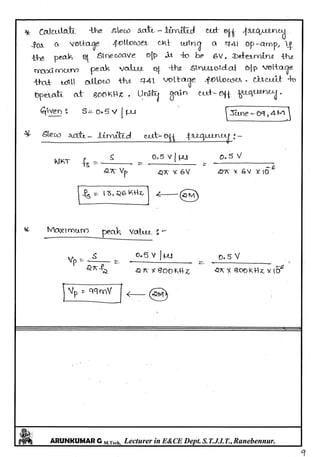 * Calculate the slew rate-limited cut off frequency
for a voltage follower ckt using a 741 op-amp, if
the peak of sinewave o/p is to be 6V. Determine the
maximum peak value of the sinusoidal o/p voltage
that will allow the 741 voltage follower circuit to
operate at 800KHz. Unity gain cut-off frequency.
Given : S = 0.5 V | μs
June-09, 4M
* Slew rate - limited cut-off frequency :-
WKT fs = S / 2π Vp = 0.5 V | μs / 2π x 6V = 0.5 V / 2π x 6V x 10^-6
fs = 13.26 KHz ← 2M
* Maximum peak value :-
Vp = S / 2π f2 = 0.5 V | μs / 2π x 800 KHz = 0.5 V / 2π x 800 KHz x 10^-6
Vp = 99mV ← 2M
ARUNKUMAR G M.Tech, Lecturer in E&CE Dept. S.T.J.I.T., Ranebennur.
9